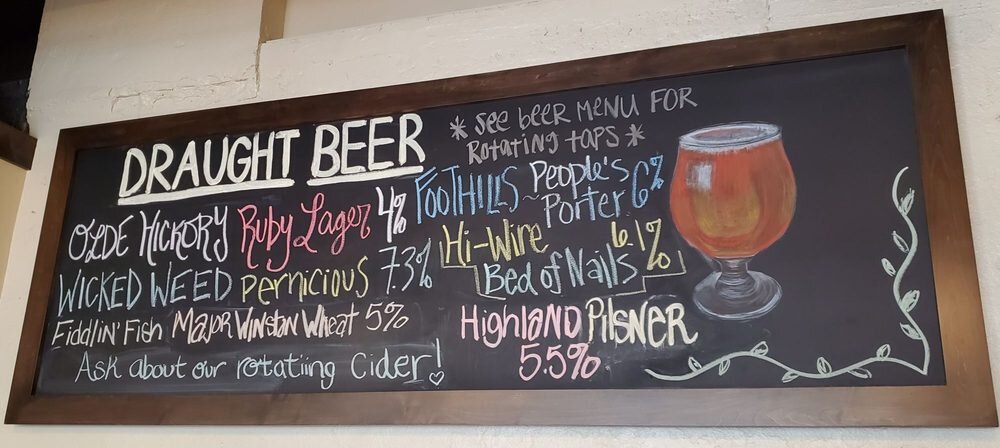 DRAUGHT BEER
* see beer menu for
Rotating taps *
OLDE HICKORY Ruby Lager 4%
WICKED WEED Pernicious 7.3%
Fiddlin' Fish Major Winston Wheat 5%
Ask about our rotatiing Cider!
FOOTHILLS ~ People's
Porter 6%
Hi-Wire 6.1%
Bed of Nails
Highland Pilsner
5.5%